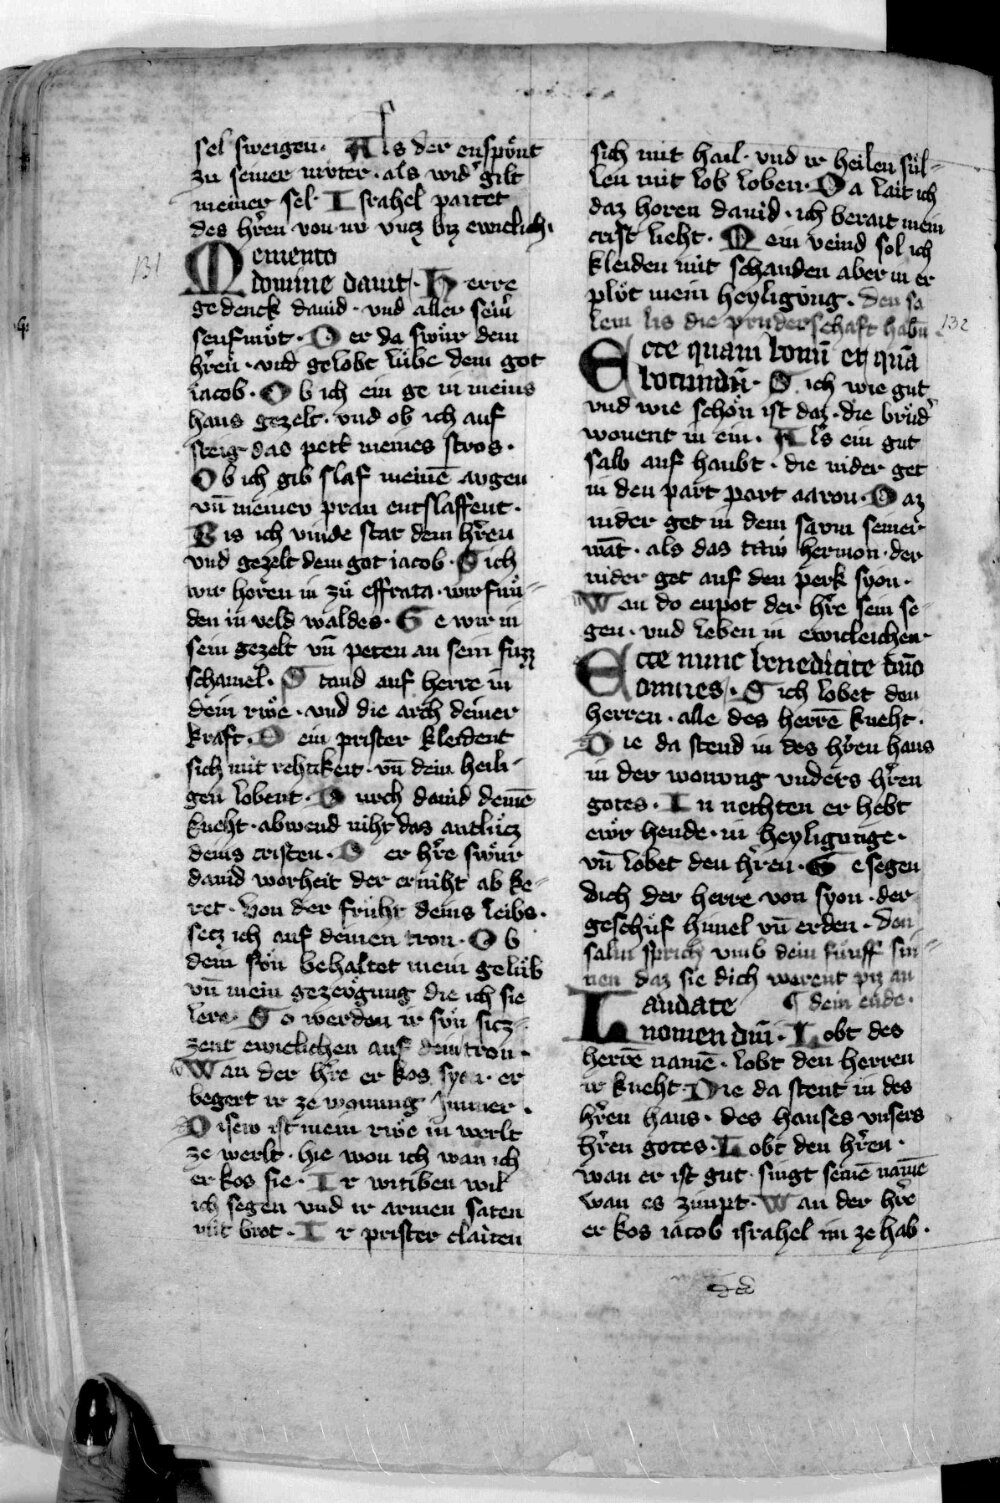 sel sweigen · Als der enspönt
zu seiner muter · als wid' gilt
meiner sel · Israhel partet
des hr̄en von nv vncz biz ewiclich ·
131
Memento
domine dauit · Herre
gedenck dauid · vnd aller sein'
senfmüt · Der da swür dem
hr̄en · vnd gelobt lübe dem got
iacob · Ob ich ein ge in meins
haus gezelt · vnd ob ich auf
steig das pett meines stros ·
Ob ich gib slaf meinē augen
vn̄ meinen pran entslaffent ·
Bis ich vinde stat dem hr̄en
vnd gezelt dem got iacob · Sich
wir horen in zü effrata · wir fun-
den in veld waldes · Ge wir in
sein gezelt vn̄ peten an sein fuzz
schamel · Stand auf herre in
dein rwe · vnd die arch deiner
kraft · Dein prister kleident
sich mit rehtikeit · vn̄ dein heili-
gen lobent · Durch dauid deinē
kneht · abwend niht das antlücz
deins cristen · Der hr̄e swür
dauid worheit der er niht ab ke-
ret · Von der fruht deins leibs ·
setz ich auf deinen tron · Ob
dein sön behaltet mein gelüb
vn̄ mein gezeögung die ich sie
lere · So werden ir sön sicz-
zent ewiclichen auf dein tron ·
Wan der hr̄e er kos syon · er
begert ir ze wonung Immer ·
Disew ist mein rwe in werlt
ze werlt · hie won ich wan ich
er kos sie · Ir witiben wil
ich segen vnd ir armen saten
mit brot · Ir prister claiten
sich mit hail · vnd ir heilen sül-
len mit lob loben · Da lait ich
daz horen dauid · ich berait mein
crist lieht · Mein veind sol ich
kleiden mit schanden aber in er
plöt mein heyligöng · den sa
lem lis die pruderschaft habn̄ 132
Ecce quam bonū et quā
iocundū · Sich wie gut
vnd wie schön ist daz · die brüd'
wonent in ein · Als ein gut
salb auf haubt · die nider get
in den part part aaron · Daz
nider get in dem sawm seiner
wāt · als das taw hermon · der
nider get auf den perk syon ·
Wan do enpot der hr̄e sein se-
gen · vnd leben in ewicleichen ·
Ecce nunc benedicite dn̄o
omnes · Sich lobet den
herren · alle des herrē kneht ·
Die da stend in des hr̄en haus
in der wonung vnders hr̄en
gotes · In nechten er hebt
ewr hende · in heyligunge ·
vn̄ lobet den hr̄en · Gesegen
dich der herre von syon · der
geschüf himel vn̄ erden · Den
salm sprich vmb dein fünff sin-
nen daz sie dich werent piz an
Laudate ¶ dein ende ·
nomen dn̄i · Lobt des
herrē namē · lobt den herren
ir kneht · Die da stent in des
hr̄en haus · des hauses vnsers
hr̄en gotes · Lobt den hr̄en ·
wan er ist gut · singt seinē namē
wan es zimpt · Wan der hr̄e
er kos iacob israhel im ze hab ·